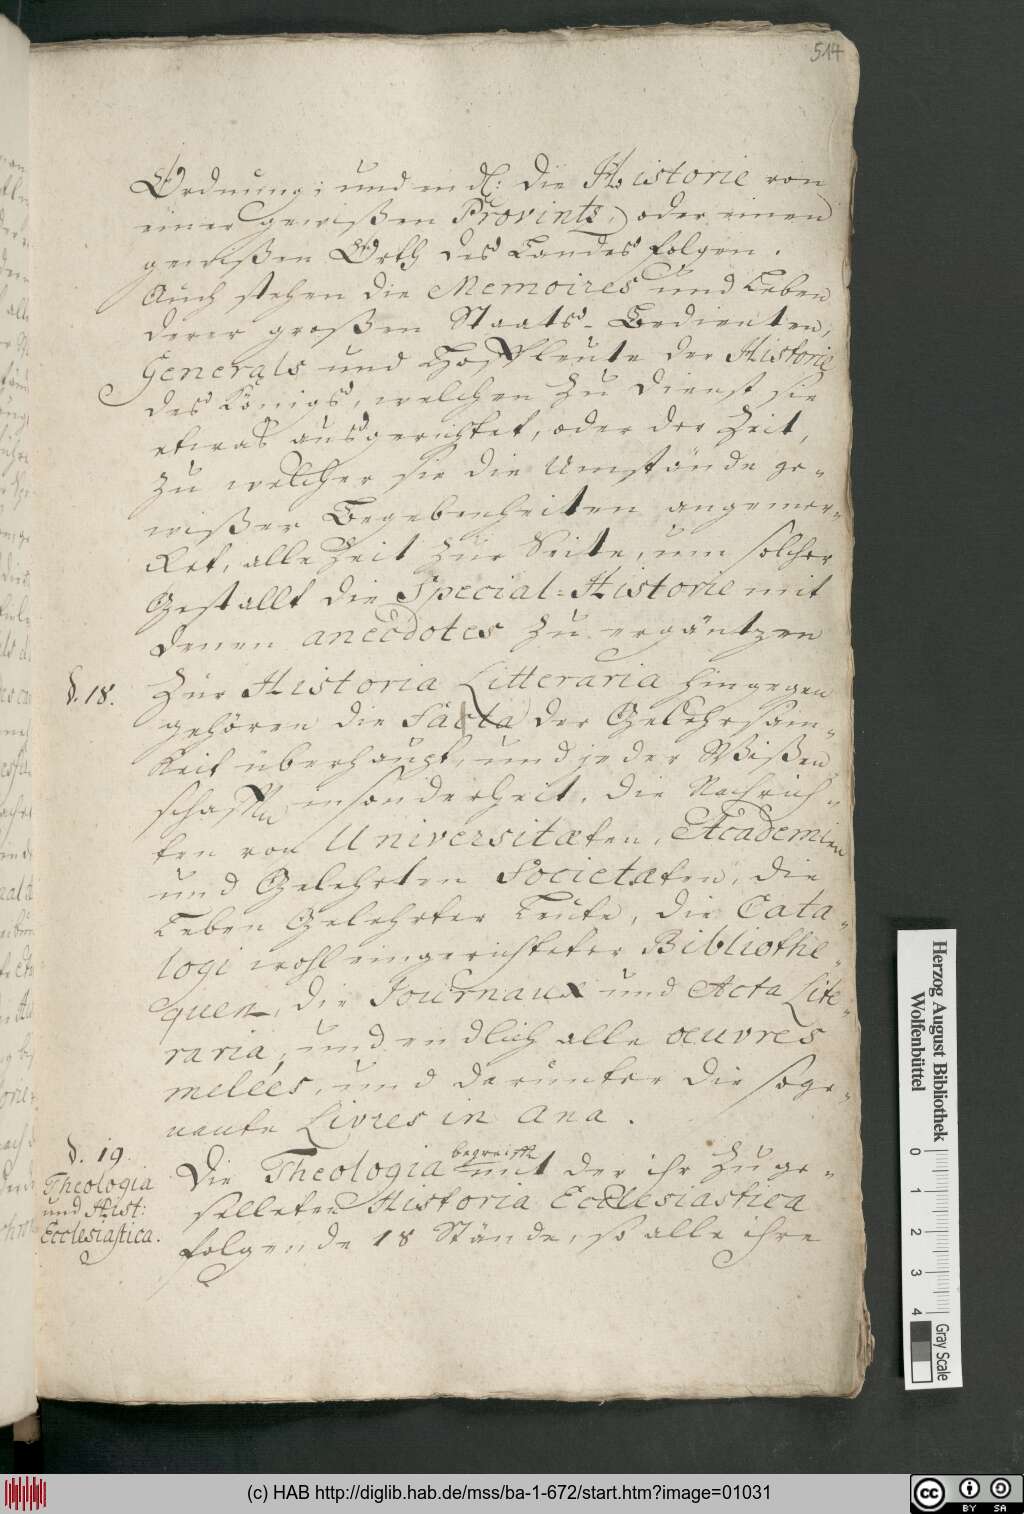 514
Ordnung; und end: die Historie von
einer gewißen Provintz, oder einen
gewißen Orth des Landes folgen.
Auch stehen die Memoires und Leben
derer großen Staats-Bedienten,
Generals und Hoffleute der Historie
des Königs, welchen zu dienst sie
etwas ausgerichtet, oder der Zeit,
zu welcher sie die Umstände ge-
wißer Begebenheiten angemer-
ket, alle Zeit zur Seite, um solcher
Gestallt die Special-Historie mit
denen anecdotes zu ergäntzen
§. 18. Zur Historia Litteraria hingegen
gehören die Facta der Gelehrsam-
keit überhaupt, und jeder Wißen
schafften insonderheit, die Nachrich-
ten von Universitæten, Academien
und Gelehrten Societæten, die
Leben Gelehrter Leute, die Cata-
logi wohl eingerichteter Bibliothe-
quen, die Journaux und Acta Lite-
raria, und endlich alle oeuvres
melées, und darunter die soge-
nante Livres in ana.
§. 19.
Theologia
und Hist:
Ecclesiastica.
Die Theologia begreifft mit der ihr zuge-
selleten Historia Ecclesiastica
folgende 18 Stände, so alle ihre
Herzog August Bibliothek
Wolfenbüttel
0 1 2 3 4
Gray Scale
(c) HAB http://diglib.hab.de/mss/ba-1-672/start.htm?image=01031
cc BY SA